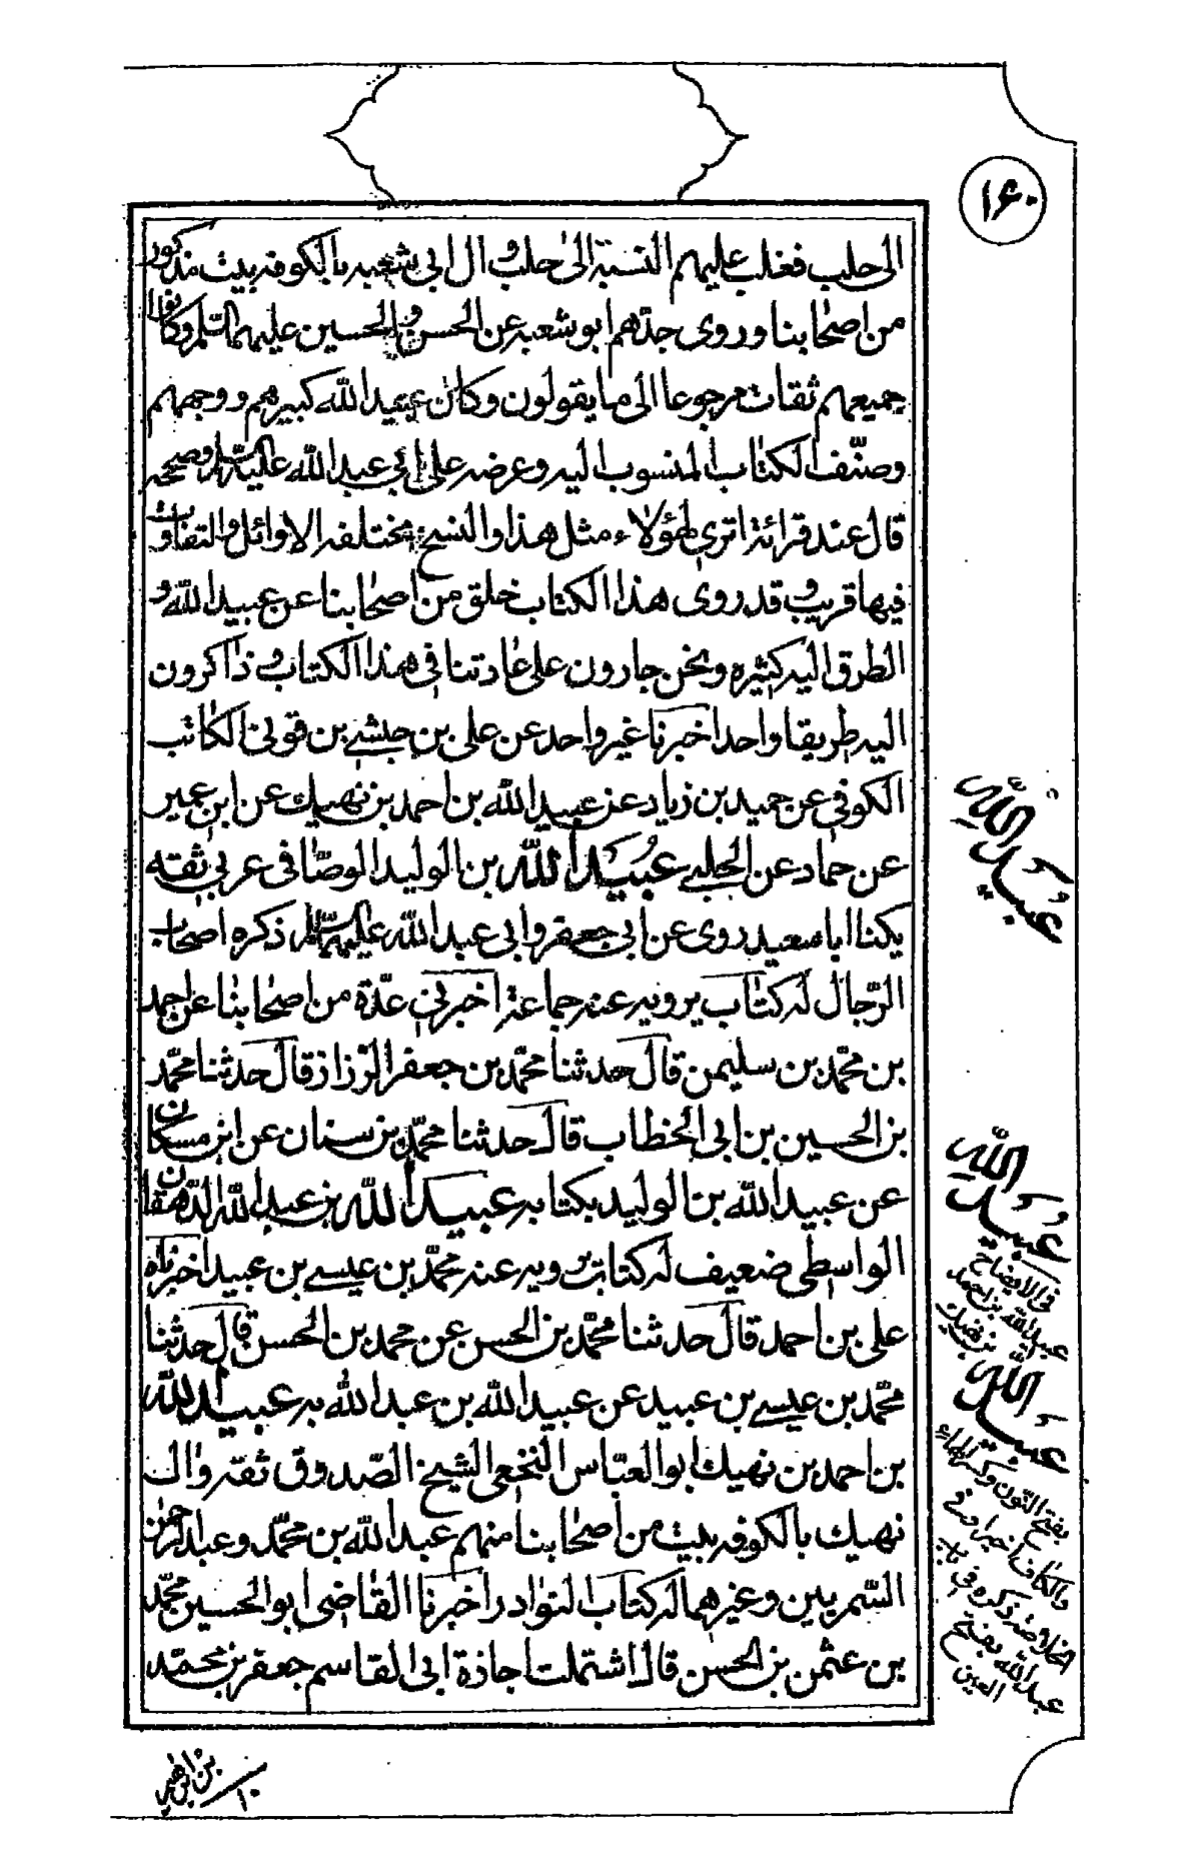 ۱۶۰
الى حلب فغلب عليهم النسبة الى حلب و ال ابى شعبه بالكوفه بيت مذكور
من اصحابنا و روى جدّهم ابو شعبه عن الحسن و الحسين عليهما السّلم و كانوا
جميعهم ثقات مرجوعا الى ما يقولون و كان عبيد الله كبيرهم و وجههم
و صنّف الكتاب المنسوب اليه و عرضه على ابى عبد الله عليه السّلم و صححه
قال عند قرائته اترى لهؤلاء مثل هذا و النسخ مختلفه الاوائل و التفاوت
فيها قريب و قد روى هذا الكتاب خلق من اصحابنا عن عبيد الله و
الطرق اليه كثيره و نحن جارون على عادتنا فى هذا الكتاب و ذاكرون
اليه طريقا واحدا اخبرنا غير واحد عن على بن حبشى بن قونى الكاتب
الكوفى عن حميد بن زياد عن عبيد الله بن احمد بن نهيك عن ابن عمير
عن حماد عن الحلبى عُبَيْد الله بن الوليد الوصّافى عربى ثقه
يكنا ابا سعيد روى عن ابى جعفر و ابى عبد الله عليهما السّلم ذكره اصحاب
الرّجال له كتاب يرويه عنه جماعة اخبرنى عدّة من اصحابنا عن احمد
بن محمّد بن سليمن قال حدثنا محمّد بن جعفر الرّزاز قال حدثنا محمّد
بن الحسين بن ابى الخطاب قال حدثنا محمّد بن سنان عن ابن مسكان
عن عبيد الله بن الوليد بكتابه عبيد الله بن عبد الله الدّهقان
الواسطى ضعيف له كتاب يرويه عنه محمّد بن عيسى بن عبيد اخبرناه
على بن احمد قال حدثنا محمّد بن الحسن عن محمد بن الحسن قال حدثنا
محمّد بن عيسى بن عبيد عن عبيد الله بن عبد الله به عبيد الله
بن احمد بن نهيك ابو العبّاس النخعى الشيخ الصّدوق ثقه و ال
نهيك بالكوفه بيت من اصحابنا منهم عبد الله بن محمّد و عبد الرحمن
السّمريين و غيرهما له كتاب النوادر اخبرنا القاضى ابو الحسين محمّد
بن عثمن بن الحسن قال اشتملت اجازة ابى القاسم جعفر بن محمّد
عُبَيْد الله
عُبَيْد الله
فى الايضاح
عبد الله بن احمد
بن نهيك
عبيد الله
بفتح النّون و كسر الهاء
و الكاف اخيرا و فى
الخلاصه ذكره فى باب
عبد الله بفتح
العين
بن ابرهيم
۱۰